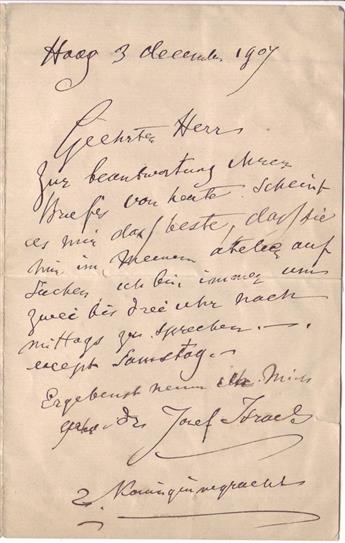 Haag 3 december 1907
Geehrter Herr
Zur beantwortung Ihres
Briefes von heute. Scheint
es mir das beste, dass Sie
mir in meinem atelier auf
suchen ich bin immer um
zwei bis drei uhr nach
mittags zu sprechen.—
except Samstag.
Ergebenst nenn ich mich
Jozef Israels
2. Koninginnegracht